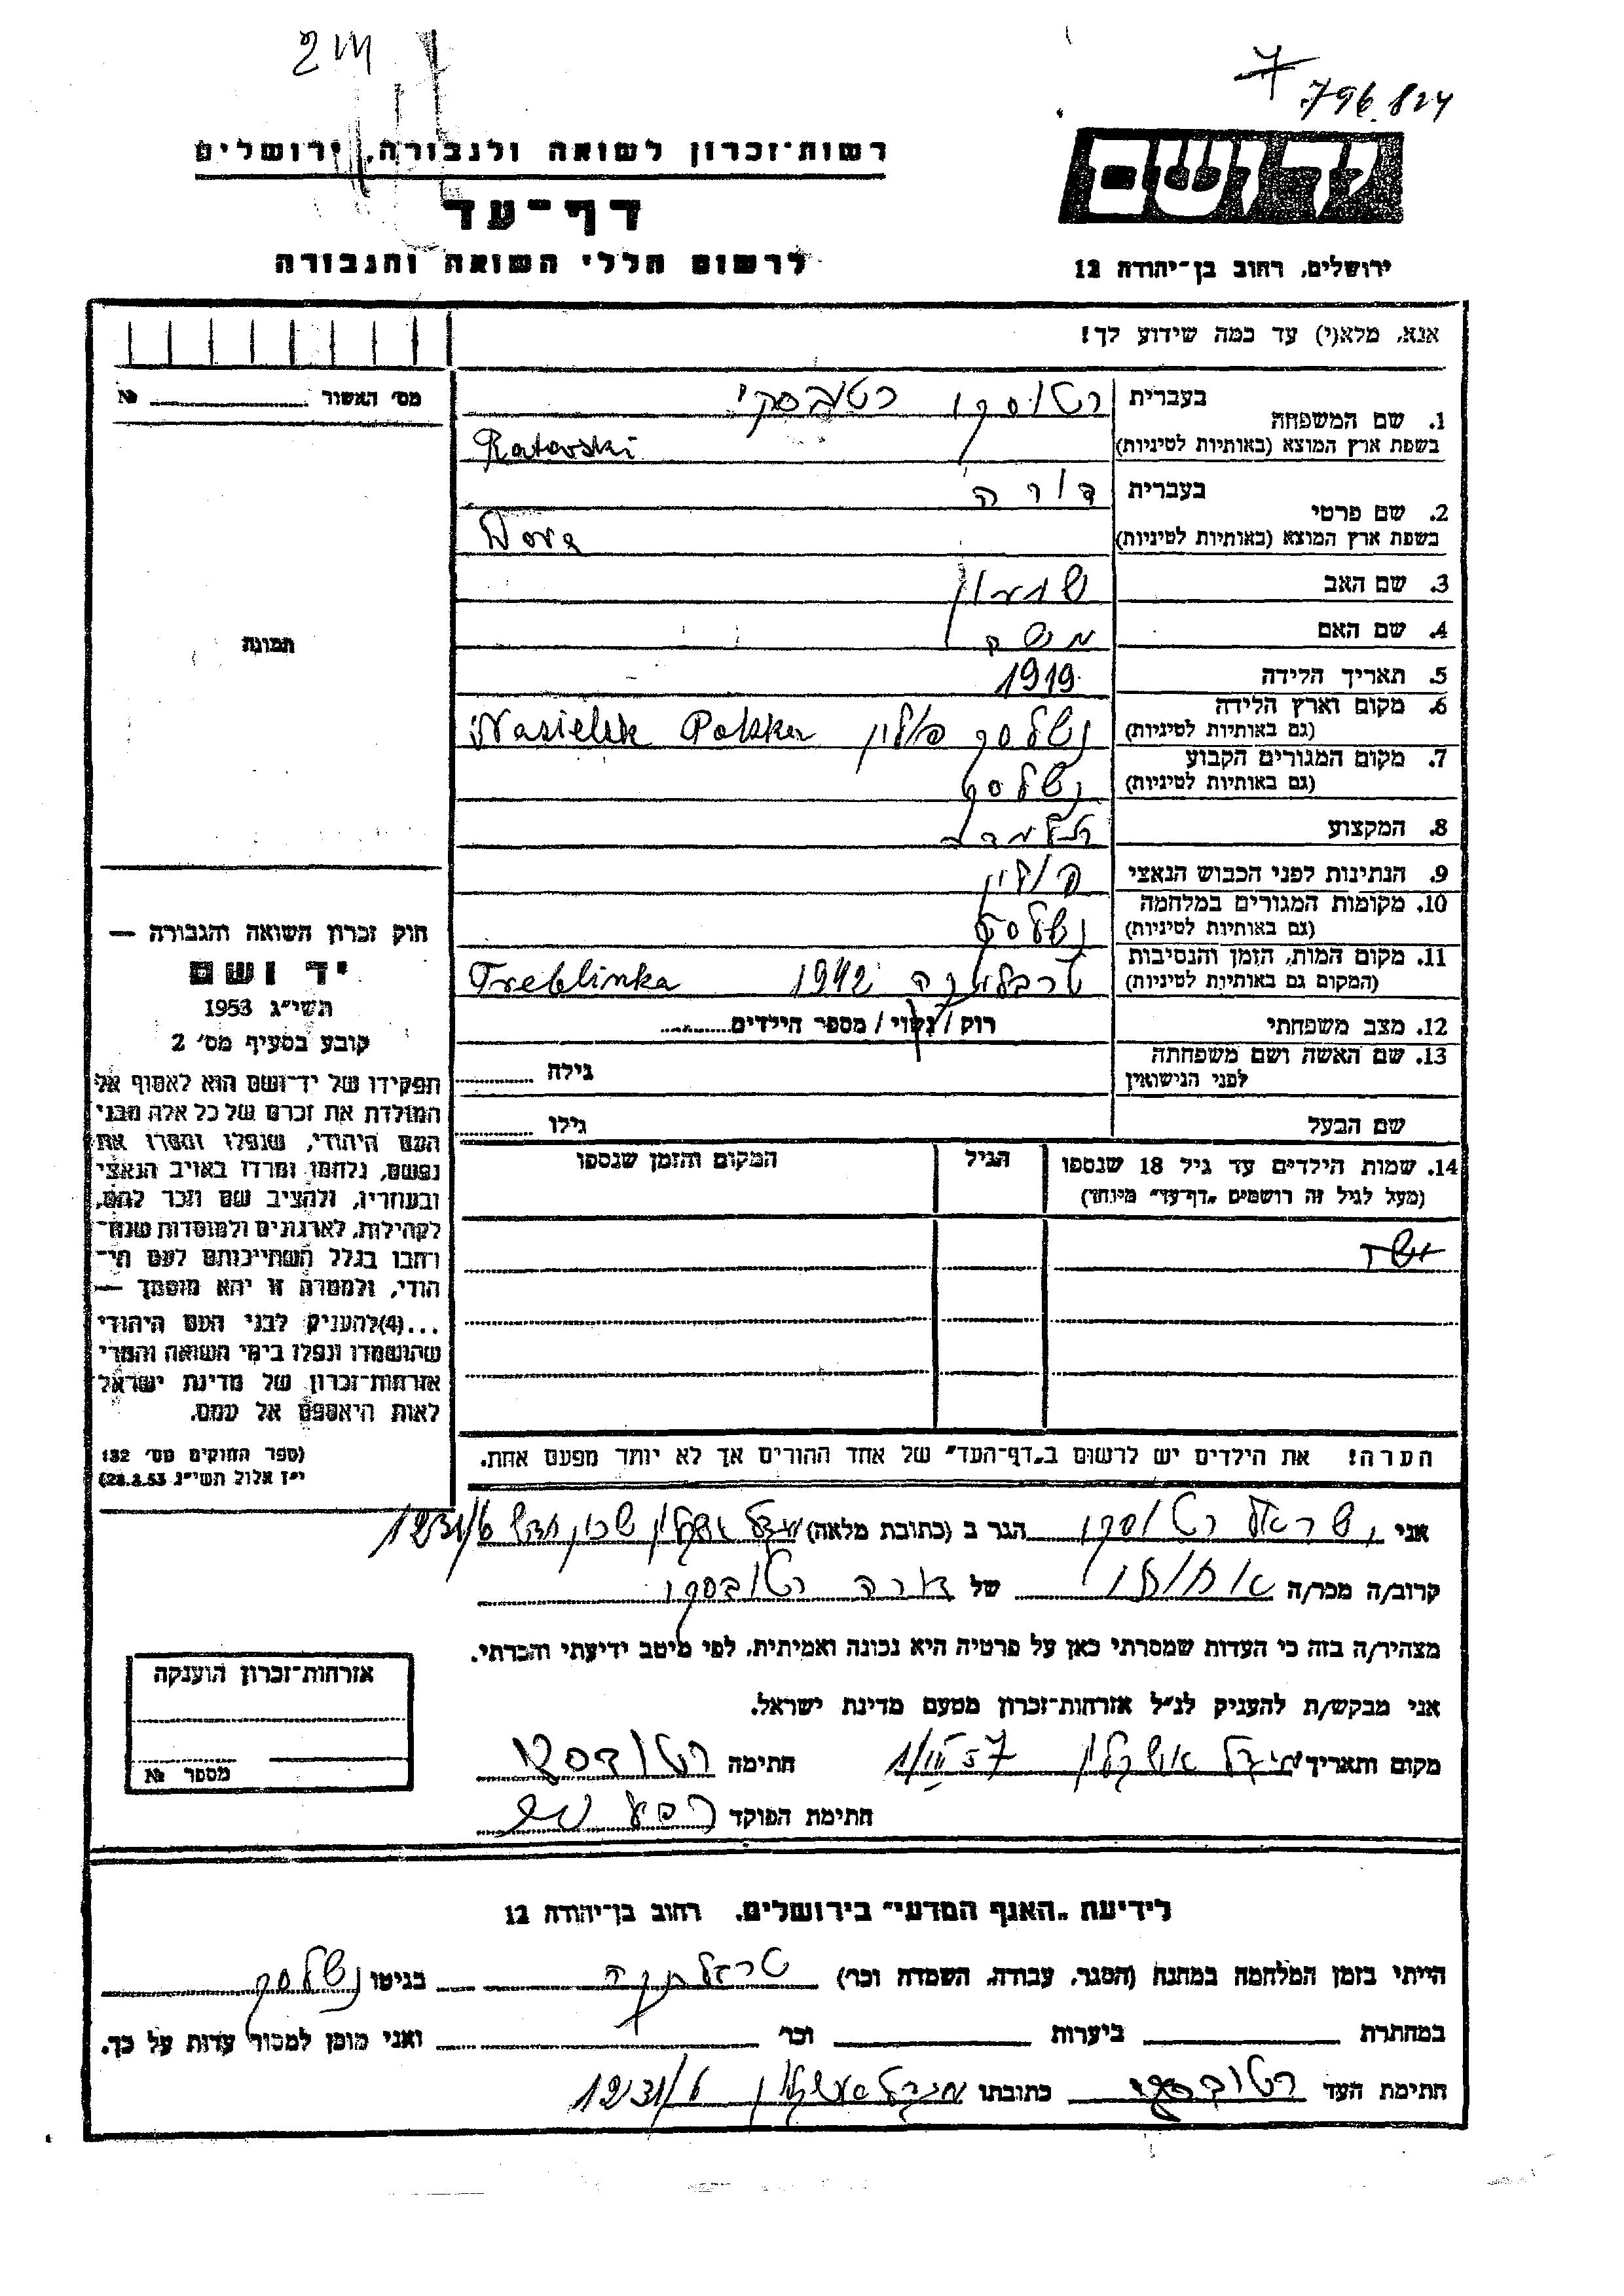 796.824
רשות־זכרון לשואה ולגבורה, ירושלים
יד ושם
דף־עד
לרשום חללי השואה והגבורה
ירושלים, רחוב בן־יהודה 12
אנא, מלא(י) עד כמה שידוע לך!
מס׳ האשור № 
1. שם המשפחה בעברית רטוסקי רטובסקי
בשפת ארץ המוצא (באותיות לטיניות) Ratovski
2. שם פרטי בעברית דורה
בשפת ארץ המוצא (באותיות לטיניות) Dora
3. שם האב
4. שם האם
תמונה
5. תאריך הלידה 1919
6. מקום וארץ הלידה (גם באותיות לטיניות) נשלסק פולין Nasielsk Polska
7. מקום המגורים הקבוע (גם באותיות לטיניות) נשלסק
8. המקצוע
9. הנתינות לפני הכבוש הנאצי פולין
10. מקומות המגורים במלחמה (גם באותיות לטיניות) נשלסק
11. מקום המות, הזמן והנסיבות (המקום גם באותיות לטיניות) טרבלינקה 1942 Treblinka
12. מצב משפחתי רוק / נשוי / מספר הילדים
13. שם האשה ושם משפחתה לפני הנישואין גילה
שם הבעל גילו
14. שמות הילדים עד גיל 18 שנספו (מעל לגיל זה רושמים "דף־עד" מיוחד) הגיל המקום והזמן שנספו
הערה! את הילדים יש לרשום ב"דף־העד" של אחד ההורים אך לא יותר מפעם אחת.
חוק זכרון השואה והגבורה —
יד ושם
תשי"ג 1953
קובע בסעיף מס׳ 2
תפקידו של יד־ושם הוא לאסוף אל
המולדת את זכרם של כל אלה מבני
העם היהודי, שנפלו ומסרו את
נפשם, נלחמו ומרדו באויב הנאצי
ובעוזריו, ולהציב שם וזכר להם,
לקהילות, לארגונים ולמוסדות שנח־
רבו בגלל השתייכותם לעם הי־
הודי, ולמטרה זו יהא מוסמך —
...(4) להעניק לבני העם היהודי
שהושמדו ונפלו בימי השואה והמרי
אזרחות־זכרון של מדינת ישראל
לאות היאספם אל עמם.
(ספר החוקים מס׳ 132
י"ז אלול תשי"ג 28.8.53)
אני ישראל רטוסקי הגר ב (כתובת מלאה) מגדל אשקלון שכון חדש 1231/6
קרוב/ה מכר/ה של דורה רטובסקי
מצהיר/ה בזה כי העדות שמסרתי כאן על פרטיה היא נכונה ואמיתית, לפי מיטב ידיעתי והכרתי.
אני מבקש/ת להעניק לנ"ל אזרחות־זכרון מטעם מדינת ישראל.
מקום ותאריך מגדל אשקלון 1/III 57 חתימה רטובסקי
חתימת הפוקד
אזרחות־זכרון הוענקה
מספר №
לידיעת "האגף המדעי" בירושלים, רחוב בן־יהודה 12
הייתי בזמן המלחמה במחנה (הסגר, עבודה, השמדה וכר׳) בגיטו נשלסק
במחתרת ביערות וכר׳ ואני מוכן למסור עדות על כך.
חתימת העד רטובסקי כתובתו מגדל אשקלון 1231/6